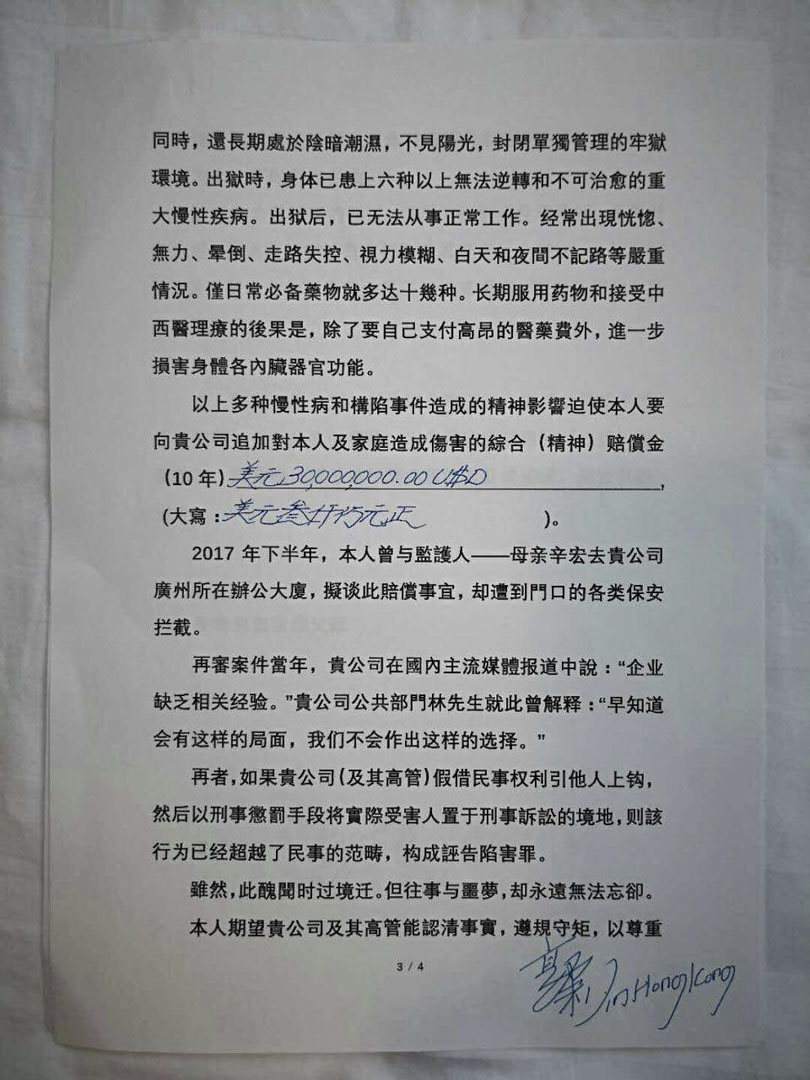 同時，還長期處於陰暗潮濕，不見陽光，封閉單獨管理的牢獄
環境。出獄時，身体已患上六种以上無法逆轉和不可治愈的重
大慢性疾病。出狱后，已无法从事正常工作。经常出現恍惚、
無力、暈倒、走路失控、視力模糊、白天和夜間不記路等嚴重
情況。僅日常必备藥物就多达十幾种。长期服用药物和接受中
西醫理療的後果是，除了要自己支付高昂的醫藥費外，進一步
損害身體各內臟器官功能。
以上多种慢性病和構陷事件造成的精神影響迫使本人要
向貴公司追加對本人及家庭造成傷害的綜合（精神）赔償金
(10 年) 美元30,000,000.00 USD ,
(大寫：美元叁仟万元正 )。
2017 年下半年，本人曾与監護人——母亲辛宏去貴公司
廣州所在辦公大廈，擬谈此賠償事宜，却遭到門口的各类保安
拦截。
再審案件當年，貴公司在國內主流媒體报道中說：“企业
缺乏相关经验。”貴公司公共部門林先生就此曾解释：“早知道
会有这样的局面，我们不会作出这样的选择。”
再者，如果貴公司(及其高管)假借民事权利引他人上钩，
然后以刑事懲罰手段将實際受害人置于刑事訴訟的境地，则該
行为已经超越了民事的范畴，构成誣告陷害罪。
雖然，此醜聞时过境迁。但往事与噩夢，却永遠無法忘卻。
本人期望貴公司及其高管能認清事實，遵規守矩，以尊重
3 / 4
in HongKong